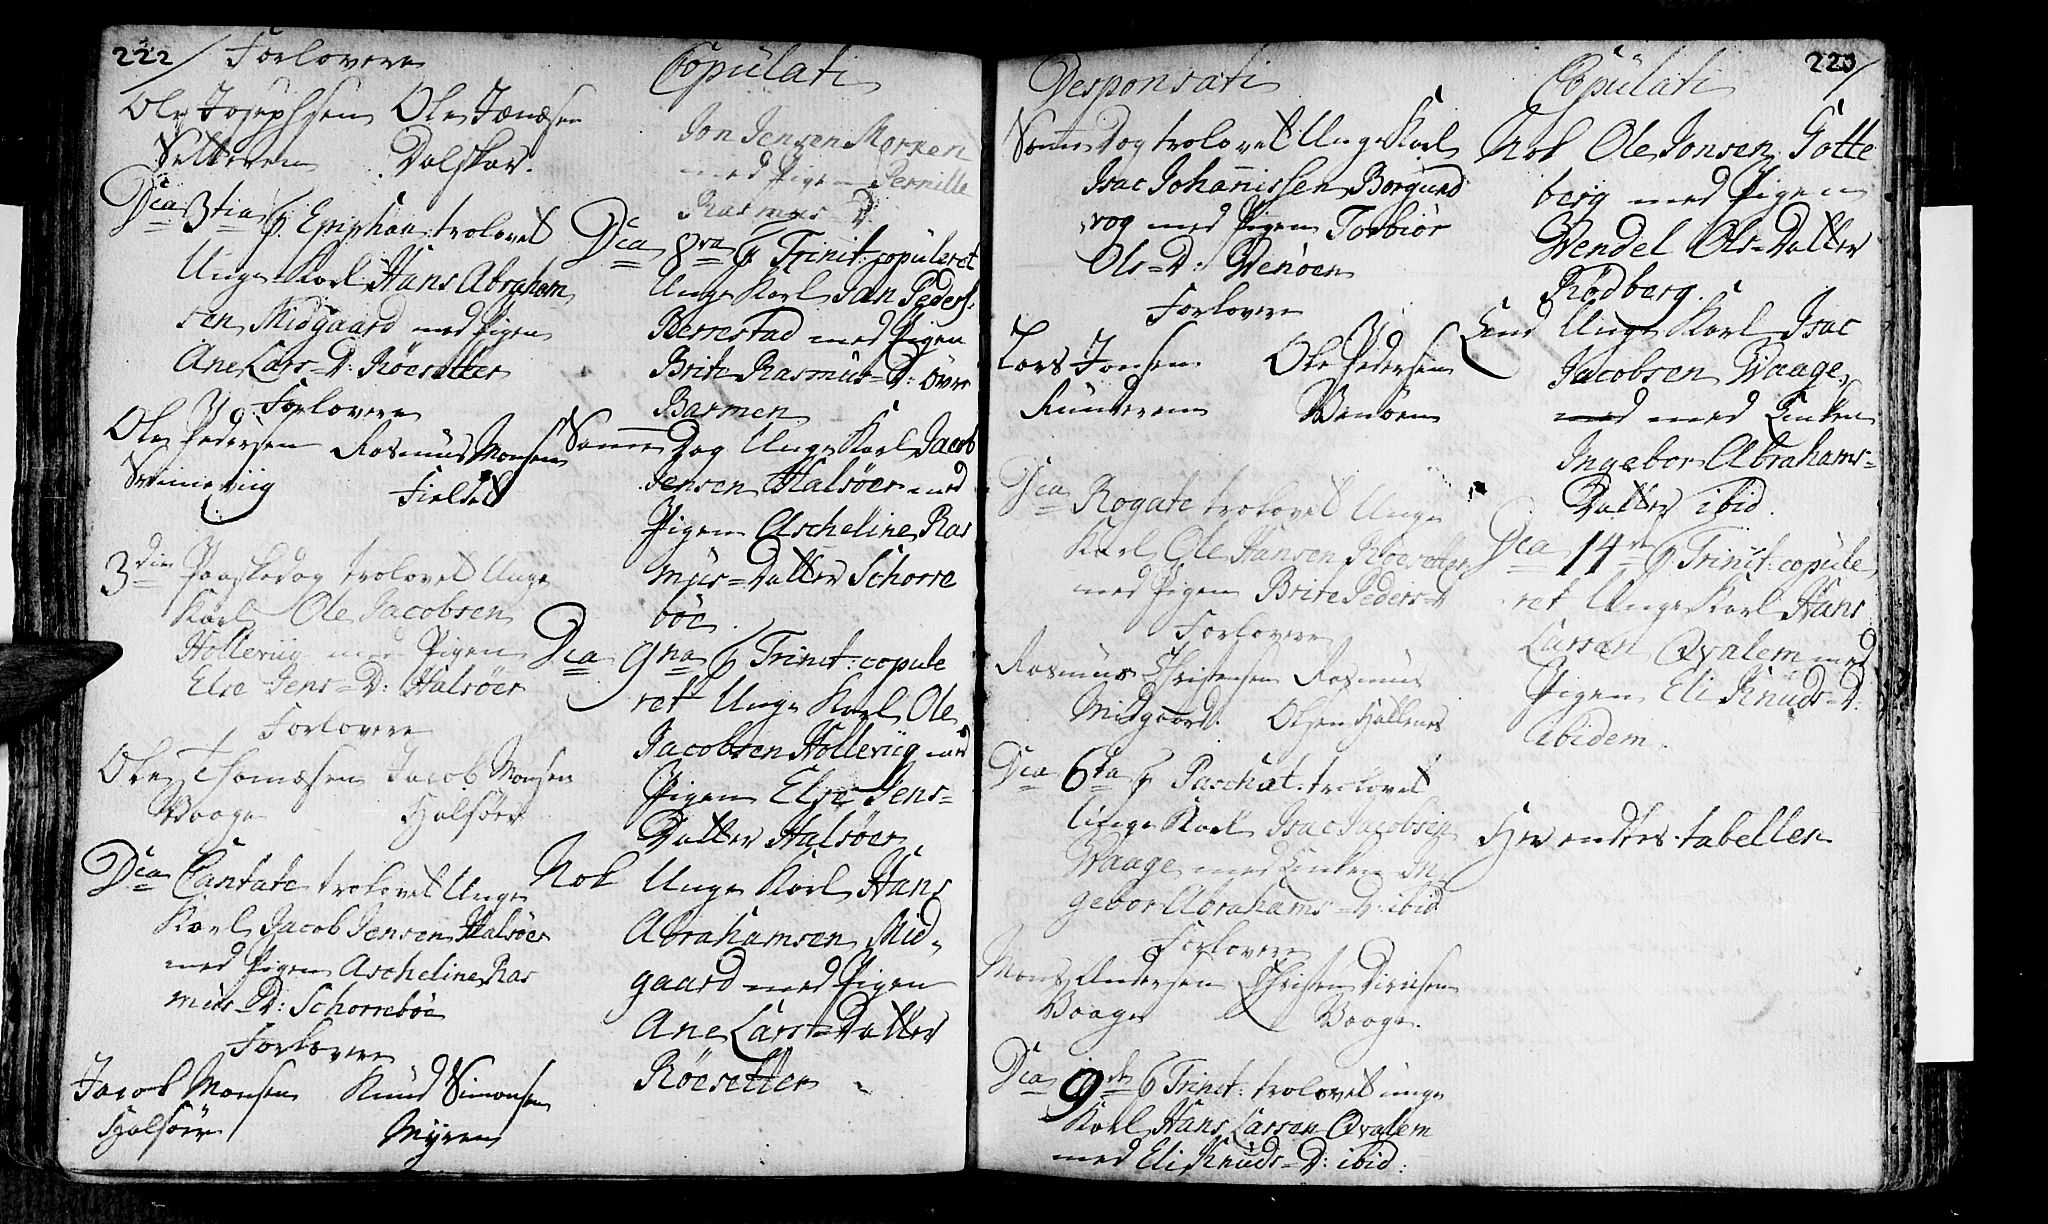 222/ Forlovere
Ole Josephsen Ole Jonæsen
Selteren Dalskar.
Dca 3tia p. Epiphan: trolovet
Unge Karl Hans Abraham
sen Midgaard med Pigen
Ane Lars=D: Röesetter
Forlovere
Ole Pedersen Rasmus Monsen
Sviineviig Fielset
3die Paaskedag trolovet Unge
Karl Ole Jacobsen
Holleviig med Pigen
Else Jens=D: Halsöer
Forlovere
Ole Thomæsen Jacob Monsen
Vaage Halsöer
Dca Cantate trolovet Unge
Karl Jacob Jensen Halsöer
med Pigen Ascheline Ras
mus D: Schorreböe
Forlovere
Jacob Monsen Knud Simonsen
Halsöer Myren
Copulati
Jon Jensen Morken
med Pigen Pernille
Rasmus=D.
Dca 8va p Trinit: copuleret
Unge Karl Jan Peders:
Berrestad med Pigen
Brite Rasmus=D: Övre
Barmen
Samme Dag Unge Karl Jacob
Jensen Halsöer med
Pigen Ascheline Ras
mus=Datter Schorre
böe.
Dca 9na p Trinit: copule
ret Unge Karl Ole
Jacobsen Holleviig med
Pigen Else Jens=
Datter Halsöer
Nok Unge Karl Hans
Abrahamsen Mid=
gaard med Pigen
Ane Lars=Datter
Röesetter
223/
Desponsati
Samme Dag trolovet Unge Karl
Isac Johannissen Borgund
vog med Pigen Torbiör
Ols=D: Venöen
Forlovere
Lars Jonsen Ole Pedersen
Runderem Venöen
Dca Rogate trolovet Unge
Karl Ole Hansen Röesetter
med Pigen Brite Peders=D
Forlovere
Rasmus Christensen Rasmus
Midgaard. Olsen Hallenes
Dca 6ta p Paschat: trolovet
Unge Karl Isac Jacobsen
Waage med Enken In=
gebor Abrahams=D: ibid
Forlovere
Mons Andersen Christen
Vaage Vaage.
Dca 9de p Trinit: trolovet unge
Karl Hans Larsen Qvalem
med Eli Knuds=D: ibid:
Copulati
Nok Ole Jonsen Gotte
berg med Pigen
Wendel Ols=Datter
Rödberg.
End Unge Karl Isac
Jacobsen Waage,
med med Enken
Ingebor Abrahams=
Datter ibid.
Dca 14de p Trinit: copule
ret Unge Karl Hans
Larsen Qvalem med
Pigen Eli Knuds=D:
ibidem.
Her endtes tabellen